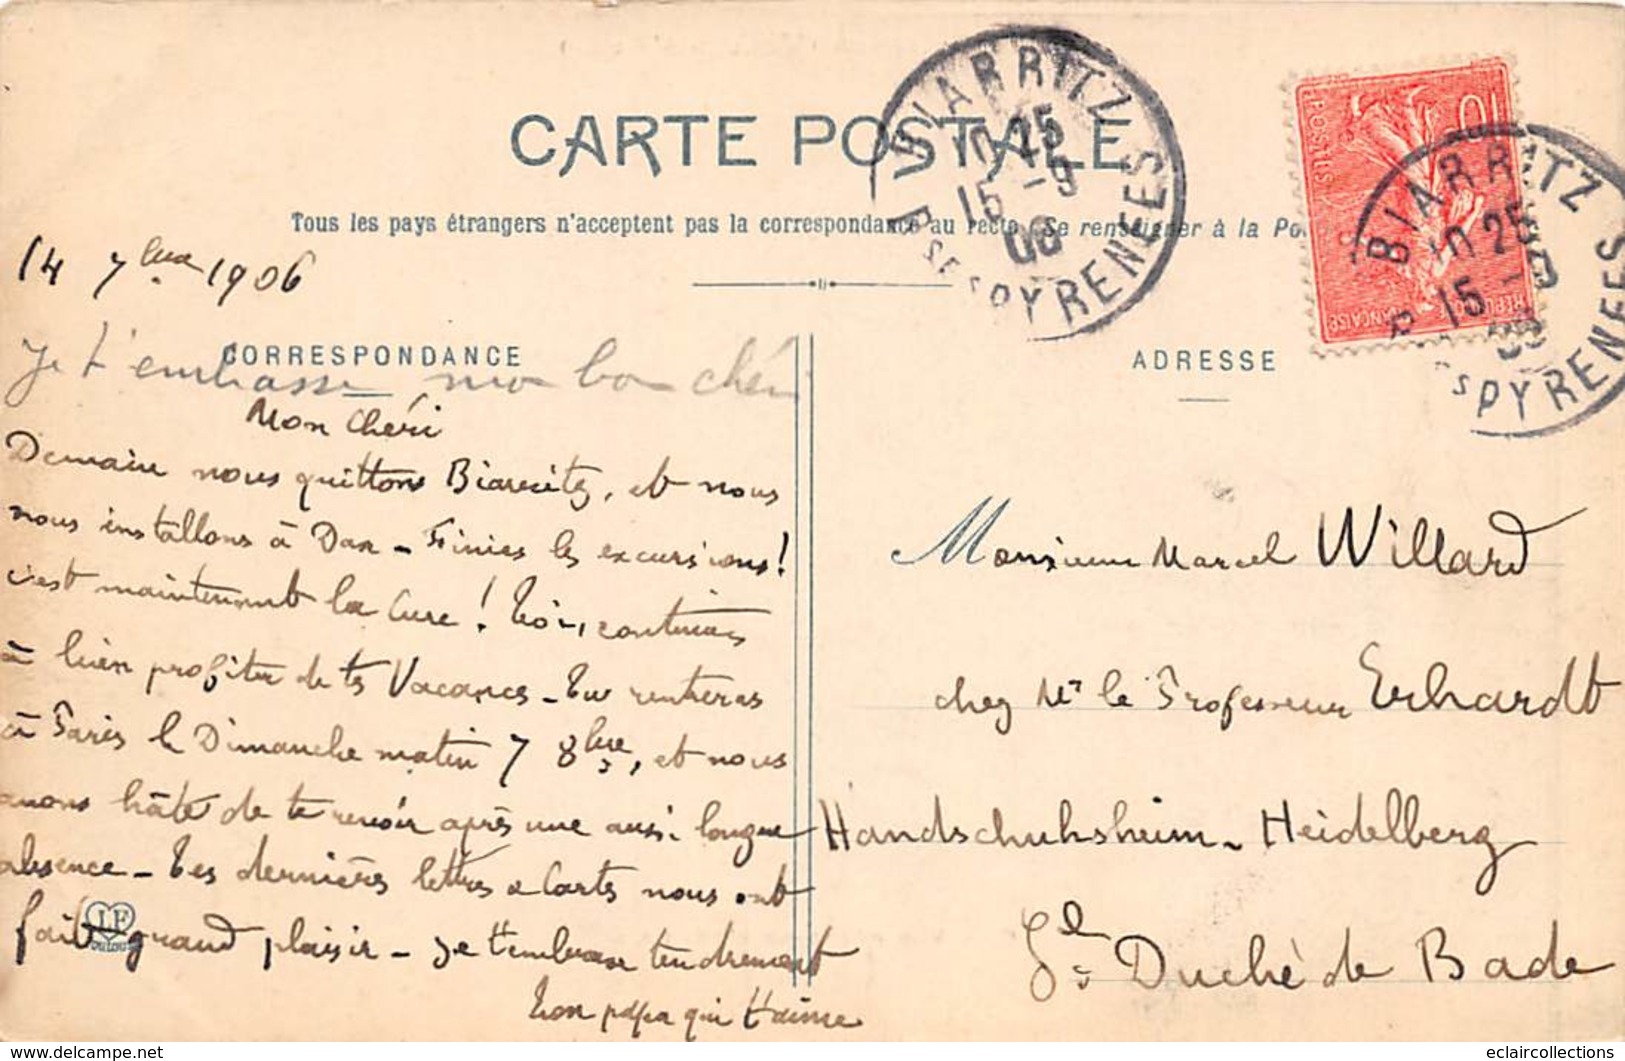 CARTE POSTALE
Tous les pays étrangers n'acceptent pas la correspondance au recto (Se renseigner à la Po
BIARRITZ
10 25
15 -9
06
BSES PYRENEES
10
POSTES
RÉPUBLIQUE FRANÇAISE
BIARRITZ
10 25
15 -9
06
BSES PYRENEES
14 7bre 1906
CORRESPONDANCE
Je t'embrasse mon bon chéri
Mon Chéri
Demain nous quittons Biarritz, et nous
nous installons à Dax - Finies les excursions!
c'est maintenant la Cure! Toi, continues
à bien profiter de tes Vacances - Tu rentreras
à Paris le Dimanche matin 7 8bre, et nous
avons hâte de te revoir après une aussi longue
absence - Tes dernières lettres & Cartes nous ont
fait grand plaisir - Je t'embrasse tendrement
Ton papa qui t'aime
ADRESSE
Monsieur Marcel Willard
chez Mr le Professeur Erhardt
Handschuhsheim - Heidelberg
Gd Duché de Bade
eclaircollections